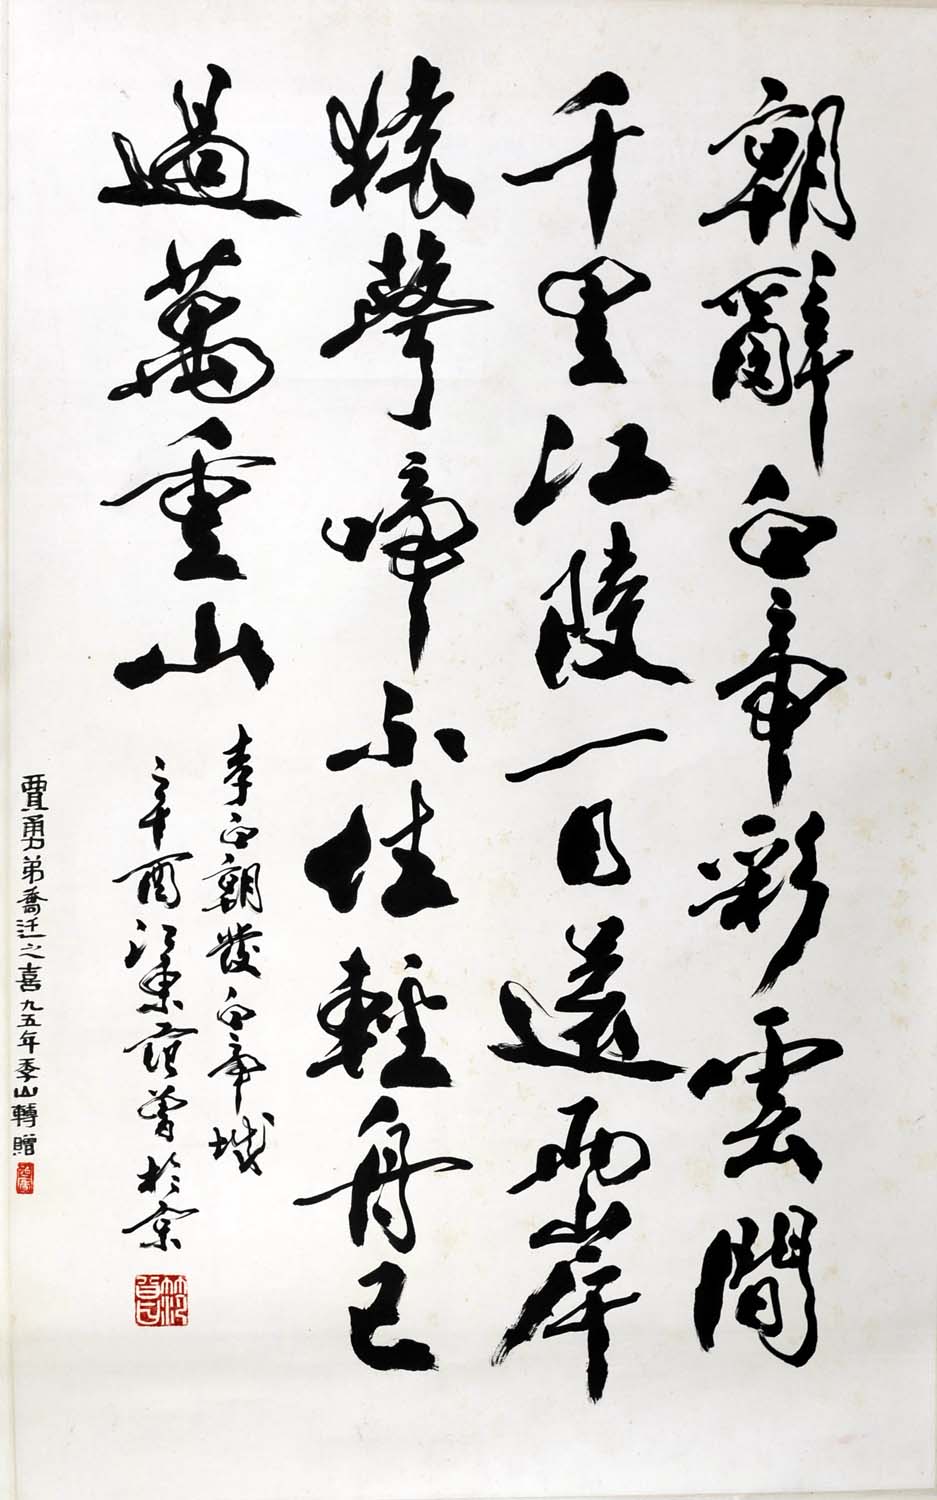 朝辭白帝彩雲間
千里江陵一日還兩岸
猿聲啼不住輕舟已
過萬重山
李白朝發白帝城
辛酉江東范曾於京
賈勇弟喬迁之喜九五年季山轉贈